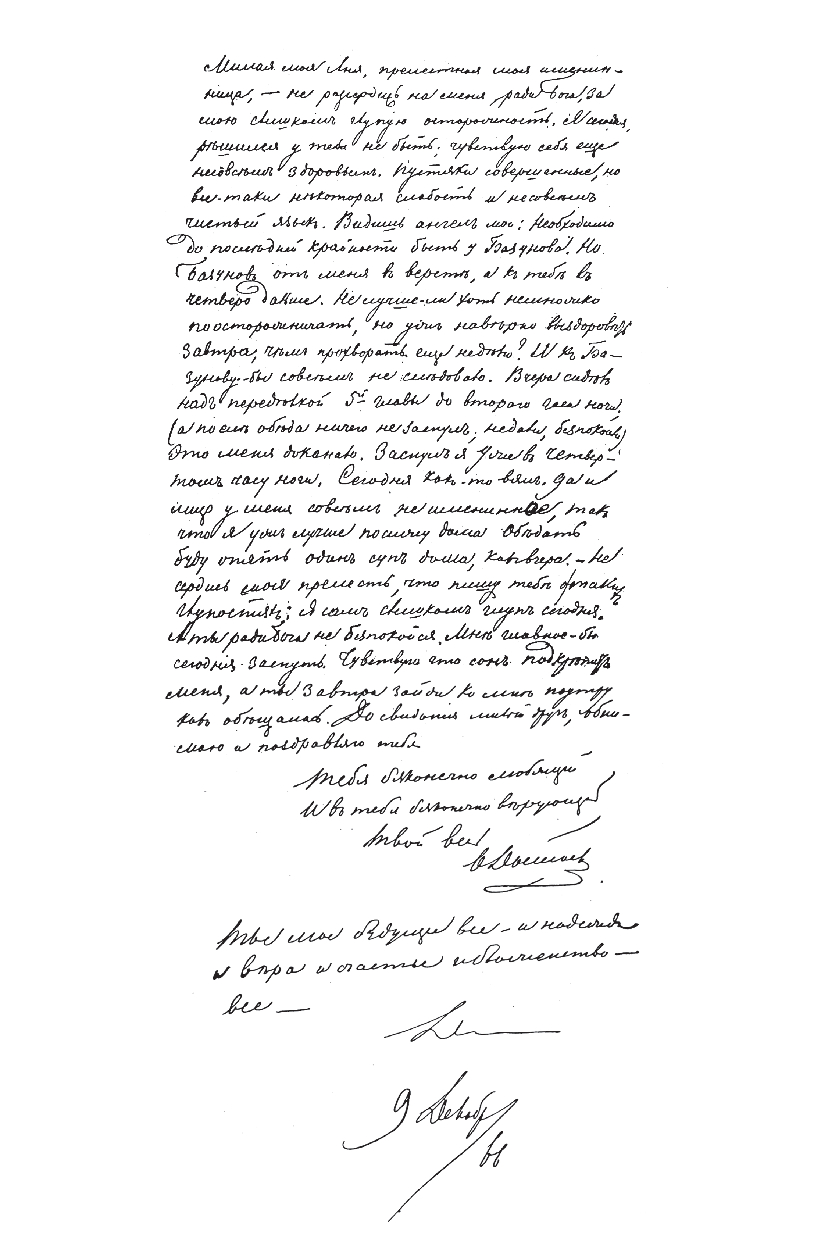 Милая моя Аня, прелестная моя именин-
ница, — не рассердись на меня ради бога, за
мою слишком глупую осторожность. Я сегодня
рѣшился у тебя не быть; чувствую себя еще
несовсѣмъ здоровымъ. Пустяки совершенные, но
все-таки нѣкоторая слабость и несовсѣмъ
чистый языкъ. Видишь ангелъ мой: Необходимо
до послѣдней крайности быть у Базунова. Но
Базуновъ отъ меня в верстѣ, а къ тебѣ въ
четверо дальше. Не лучше-ли хоть немножко
поосторожничать, но ужъ навѣрно выздоровѣть
завтра, чѣмъ прохворать еще недѣлю? И къ Ба-
зунову-бы совсѣмъ не слѣдовало. Вчера сидѣлъ
надъ передѣлкой 5й главы до втораго часа ночи,
(а послѣ обѣда ничего не заснулъ; не дали, безпокоили)
Это меня доканало. Заснулъ я уже в четвер-
томъ часу ночи. Сегодня какъ-то вялъ. Да и
лицо у меня совсѣмъ не имениннoе, такъ
что я ужъ лучше посижу дома Обѣдать
буду опять одинъ супъ дома, какъ вчера. — Не
сердись моя прелесть, что пишу тебѣ о такихъ
глупостяхъ; я самъ слишкомъ глупъ сегодня.
А ты ради бога не безпокойся. Мнѣ главное-бы
сегодня заснуть. Чувствую что сонъ подкрѣпитъ
меня, а ты завтра зайди ко мнѣ поутру
какъ обѣщала. До свиданія милый другъ, обни-
маю и поздравляю тебя
Тебя безконечно любящій
И въ тебя безконечно вѣрующій
Твой весь
Ѳ Достоевс
Ты мое будущее все — и надежда
и вѣра и счастье и блаженство —
все —
9 Декабр/
66